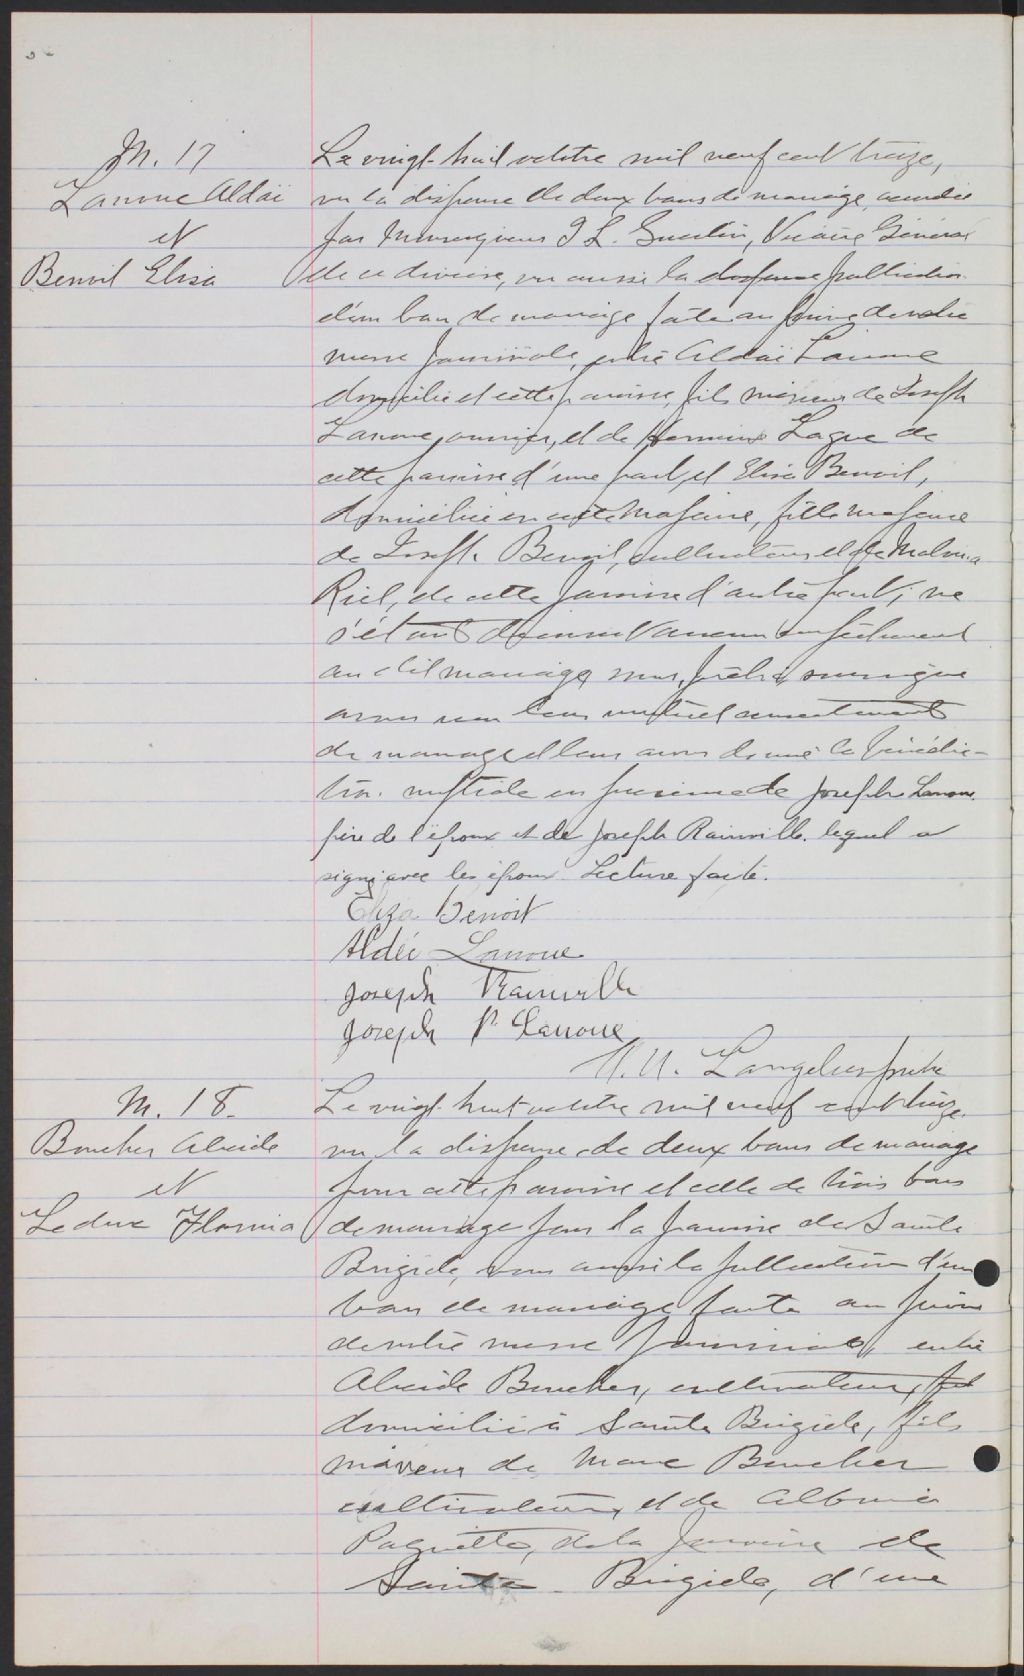 M. 17
Lanoue Aldaï
et
Benoit Elisa
Le vingt-huit octobre mil neuf cent treize,
vu la dispense de deux bans de mariage, accordée
par Monseigneur J L. Guertin, Vicaire Général
de ce diocèse, vu aussi la dispense publication
d'un ban de mariage faite au prône de notre
messe paroissiale, entre Aldaï Lanoue
domicilié et cette paroisse, fils mineur de Joseph
Lanoue, ouvrier, et de Hermine Lague de
cette paroisse d'une part, et Elisa Benoit,
domiciliée en cette paroisse, fille majeure
de Joseph Benoit, cultivateur et de Malvina
Riel, de cette paroisse d'autre part; ne
s'étant découvert aucun empêchement
au dit mariage, nous, prêtre, soussigné
avons reçu leur mutuel consentement
de mariage et leur avons donné la bénédic-
tion nuptiale en présence de Joseph Lanoue,
père de l'époux et de Joseph Rainville. lequel a
signé avec les époux. Lecture faite.
Eliza Benoit
Aldéi Lanoue
Joseph Rainville
Joseph P. Lanoue
Langelier ptre
M. 18.
Boucher Alcide
et
Leduc Florina
Le vingt-huit octobre mil neuf cent treize,
vu la dispense de deux bans de mariage
pour cette paroisse et celle de trois bans
de mariage pour la paroisse de Sainte
Brigide, vu aussi la publication d'un
ban de mariage faite au prône
de notre messe paroissiale, entre
Alcide Boucher, cultivateur, fil
domicilié à Sainte Brigide, fils
mineur de Marc Boucher
cultivateur, et de Albina
Paquette, de la paroisse de
Sainte Brigide, d'une